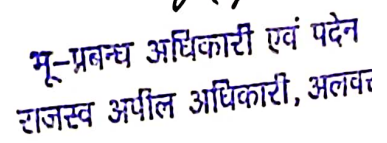 भू-प्रबन्ध अधिकारी एवं पदेन
राजस्व अपील अधिकारी,